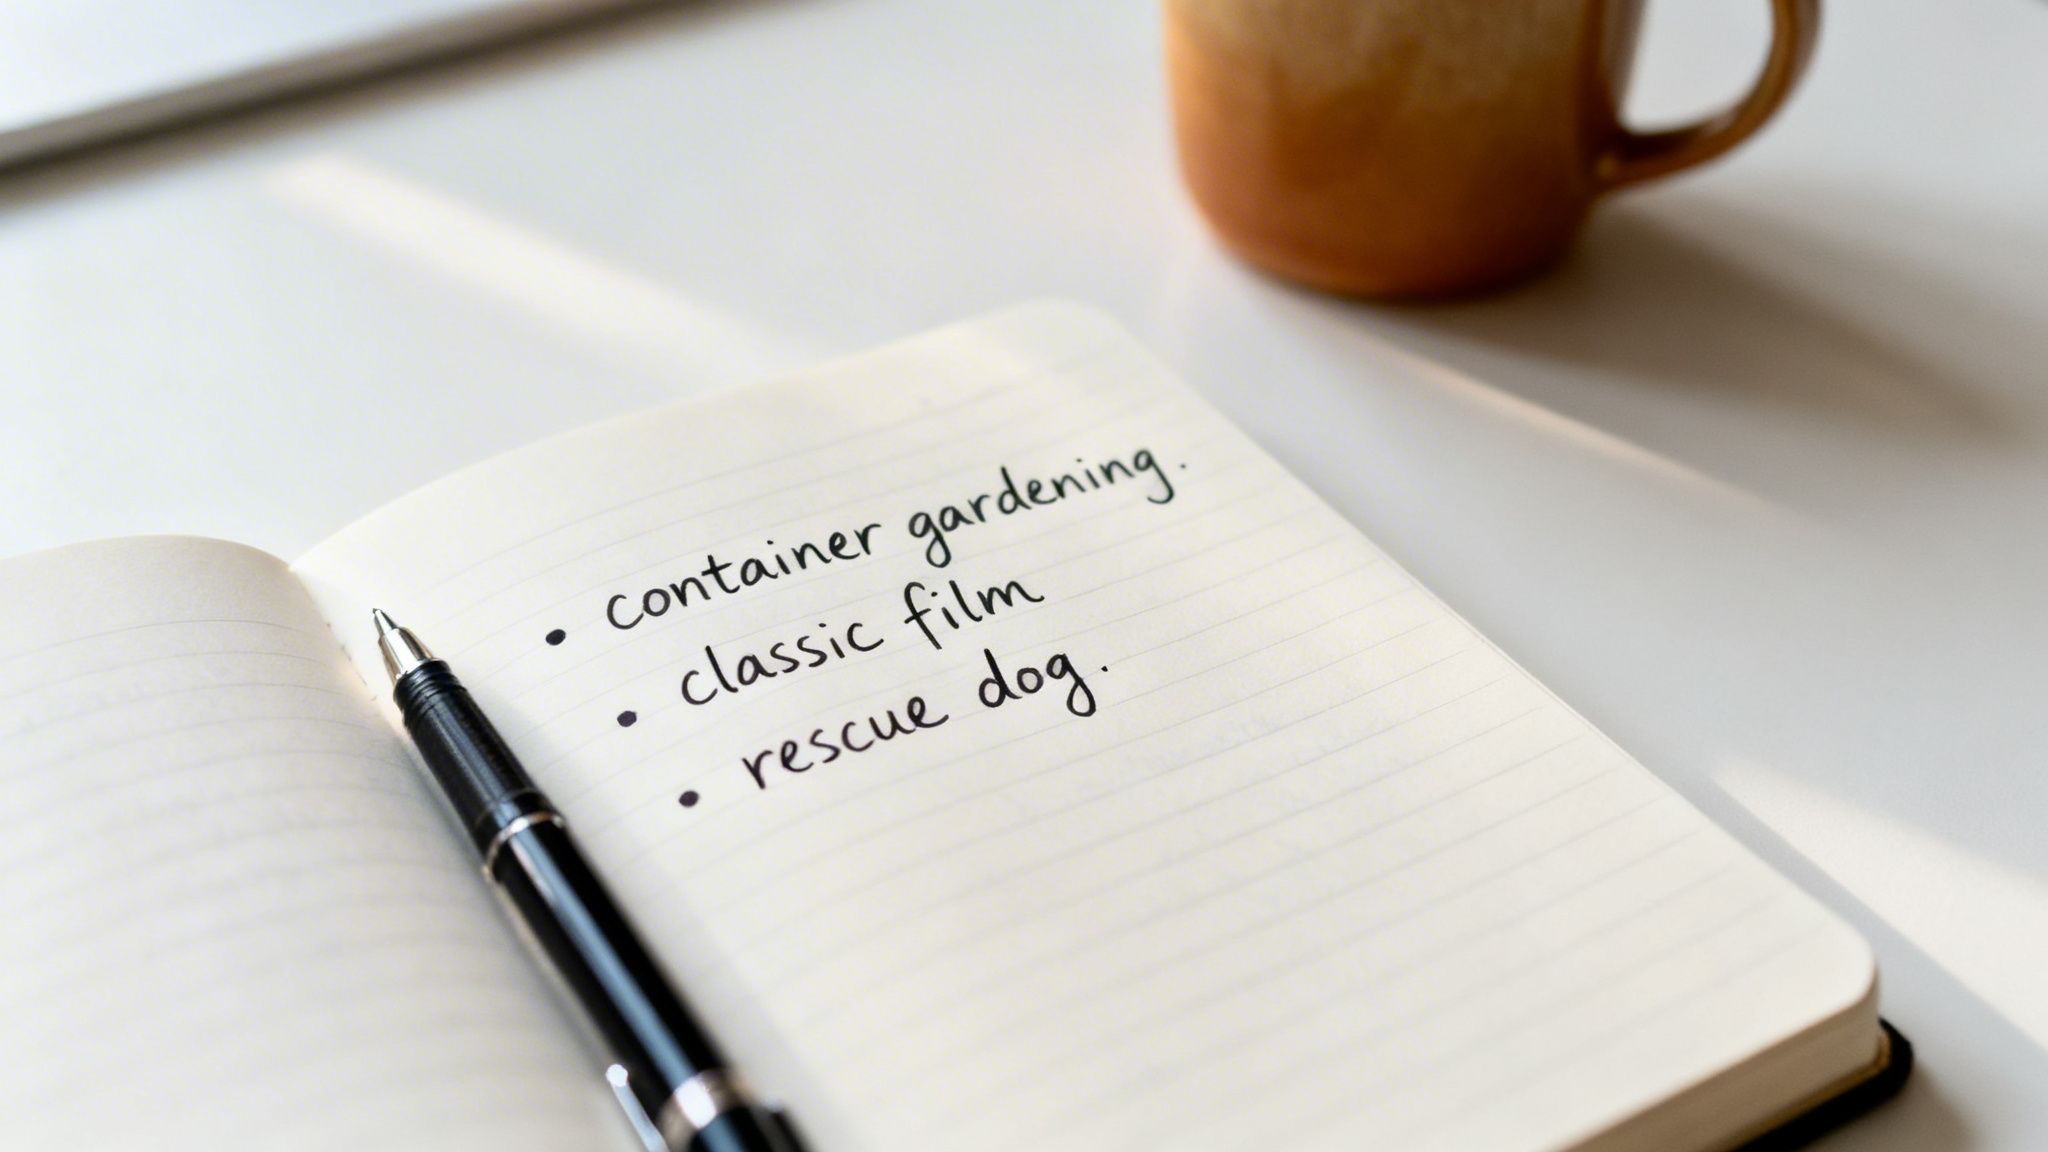 • container gardening.
• classic film
• rescue dog.